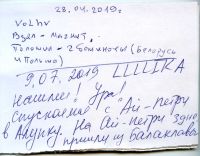 23.04.2019г.
Volhv
Взял - магнит,
Положил - 2 банкноты (Беларусь
и Польша)
9.07.2019 LLLLIKA
Нашлем! Ура!
спускаемся с "Ай-Петри
в Алупку. На Ай-петри
пришли из Балаклавы